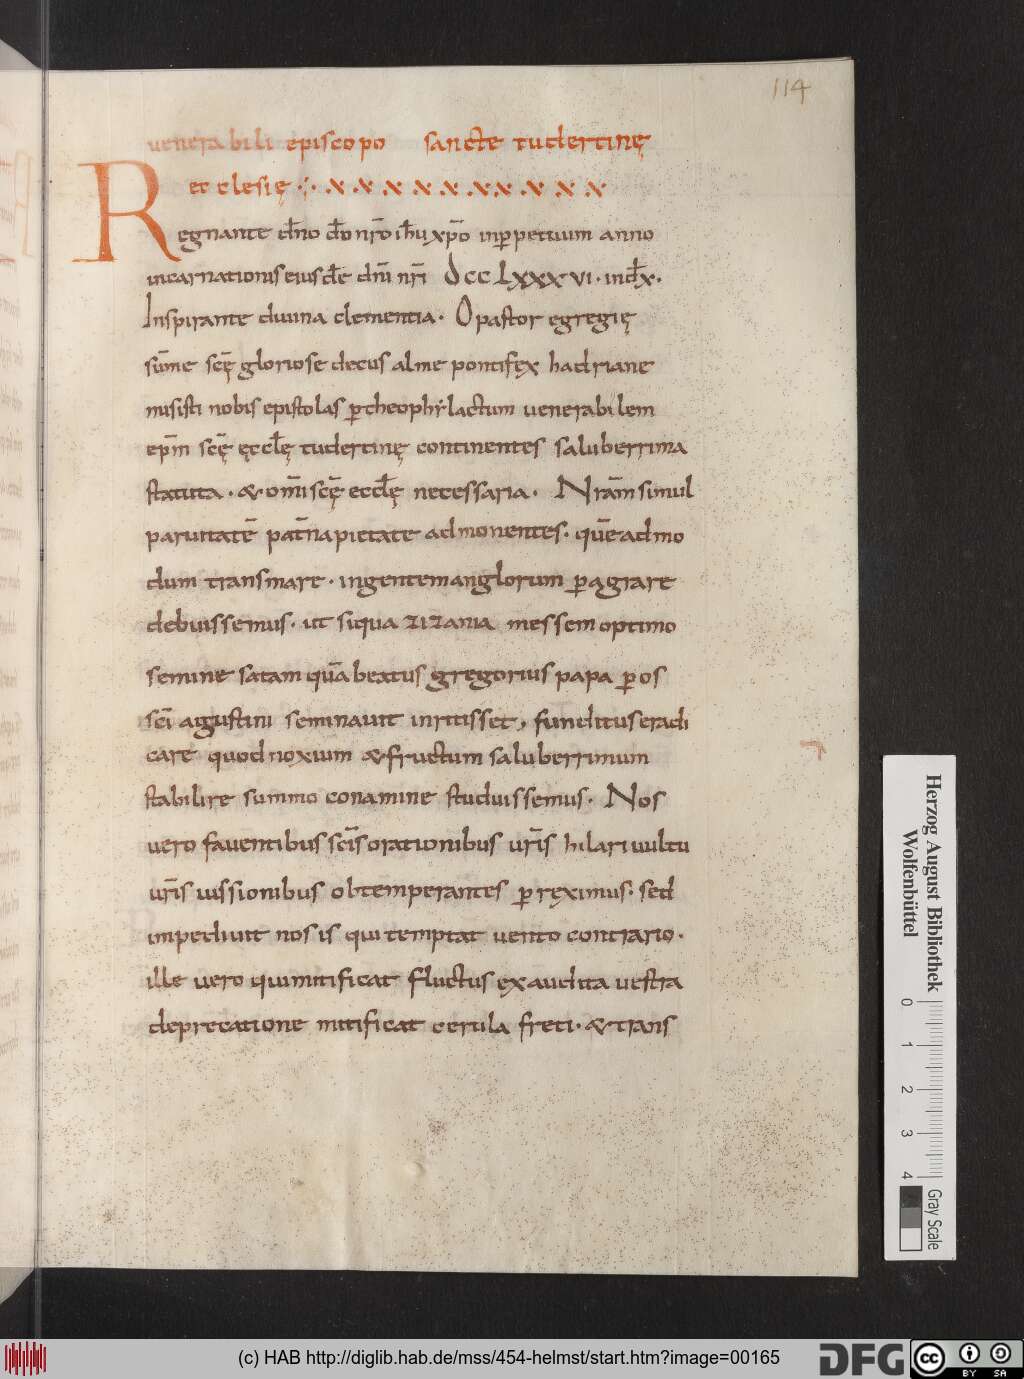 114
venerabili episcopo sancte tudertinę
ecclesię
Regnante dn̄o dō nr̄o ih̄u xp̄o inp̄petuum anno
incarnationis eiusdē dn̄i nr̄i Dcc Lxxx vi · ind̄ x ·
Inspirante diuina clementia · O pastor egregię
sūme scę̄ gloriose decus alme pontifęx hadriane
misisti nobis epistolas p̄ theophẏlactum venerabilem
ep̄m scę̄ ęccl̄ę tudertinę continentes saluberrima
statuta · & om̄i scę̄ eccl̄ę necessaria · Nr̄am simul
paruitatē pat̄na pietate admonentes · quēadmo
dum transmare · ingentem anglorum p̄agrare
debuissemus · ut siqua zizania messem optimo
semine satam quā beatus gregorius papa p̄ os
sc̄i agustini seminauit inritisset, funditus eradi
care quod noxium & fructum saluberrimum
stabilire summo conamine studuissemus · Nos
vero fauentibus sc̄is orationibus ur̄is hilari uultu
ur̄is iussionibus obtemperantes p̄ręximus · sed
impediuit nos is qui temptat vento contrario ·
ille vero qui mitificat fluctus exaudita uestra
deprecatione mitificat cerula freti · & trans
Herzog August Bibliothek
Wolfenbüttel
0 1 2 3 4
Gray Scale
(c) HAB http://diglib.hab.de/mss/454-helmst/start.htm?image=00165
DFG
cc BY SA